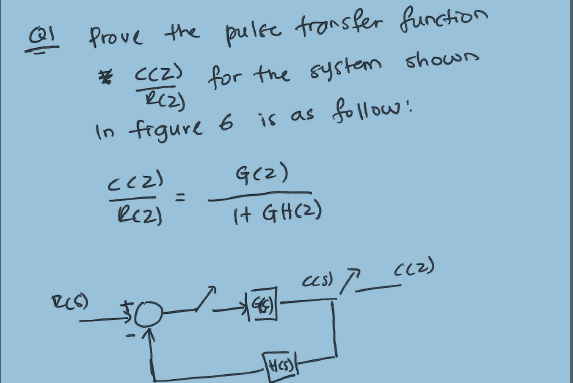 Q1 Prove the pulse transfer function
C(Z)
R(Z) for the system shown
In figure 6 is as follow:
C(Z) = G(Z)
R(Z) 1+ GH(Z)
R(S) + G(S) C(S) C(Z)
-
H(S)